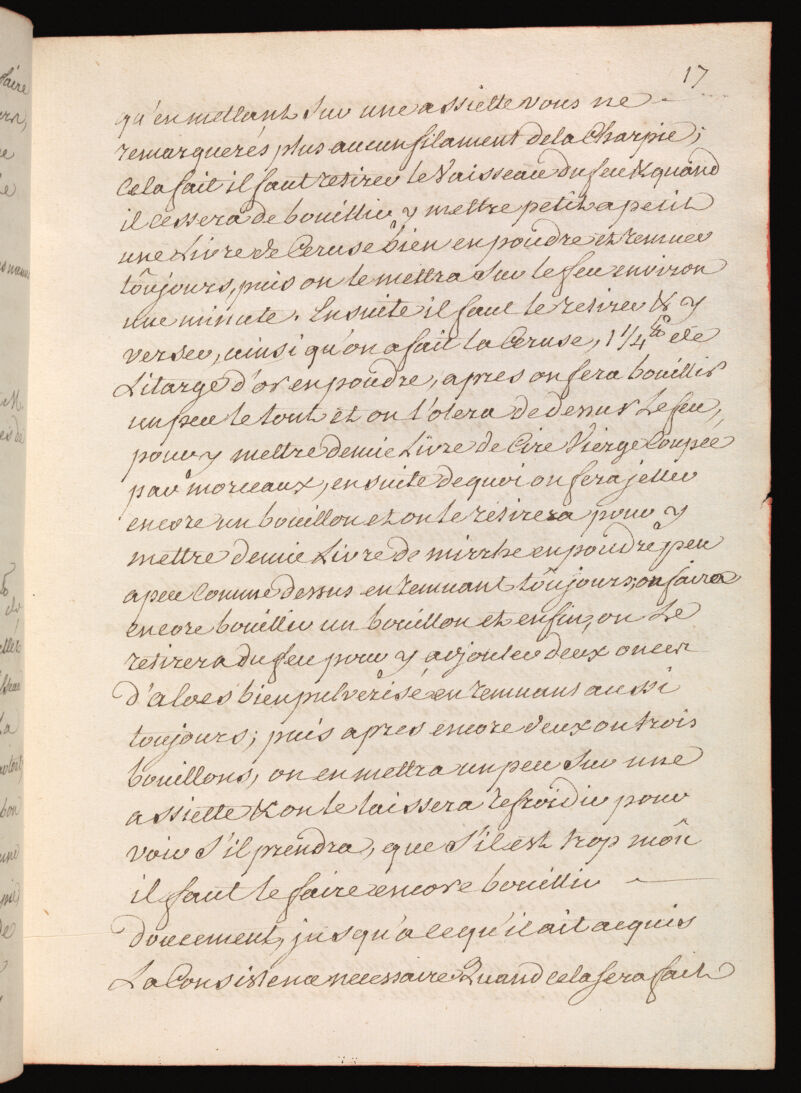 17
qu'en mettant Sur une assiette vous ne
remarquerés plus aucun filament de la Charpie;
Cela fait il faut retirer le Vaisseau du feu & quand
il cessera de bouillir y mettre petit a petit
une Livre de Ceruse bien en poudre et remuer
toûjours, puis on le mettra Sur le feu environ
une minute. Ensuite il faut le retirer & y
verser, ainsi qu'on a fait la Ceruse, 1 1/4 de
Litarge d'or en poudre, apres on fera bouillir
un peu le tout et on l'otera de dessus Le feu,
pour y mettre demie Livre de Cire Vierge Coupée
par morceaux, ensuite de quoi on fera jetter
encore un bouillon et on le retirera pour y
mettre demie Livre de mirrhe en poudre peu
a peu Comme dessus en remuant toûjours, on faira
encore bouillir un bouillon et enfin, on Le
retirera du feu pour y adjouter deux onces
d'aloes bien pulverisé en remuant aussi
toujours; puis apres encore deux ou trois
bouillons, on en mettra un peu Sur une
assiette & on le laissera refroidir pour
voir S'il prendra, que S'il est trop moû
il faut le faire encore bouillir
doucement, jusqu'a ce qu'il ait acquis
La Consistence necessaire Quand cela sera fait